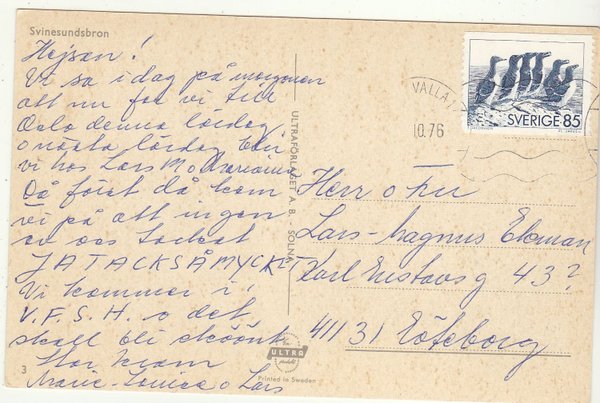 Svinesundsbron
Hejsan!
Vi sa i dag på morgonen
att nu far vi till
Oslo denna lördag,
o nästa lördag blir
vi hos Lars M o
På förest då kom
vi på att ingen
av oss tackat
JATACKSÅMYCKET
Vi kommer i
V.F.S.H. o det
skall bli skööönt
Stor kram
Marie-Louise o Lars
3
ULTRAFÖRLAGET A.B. - SOLNA
ULTRA
Printed in Sweden
VALLA
10.76
SVERIGE 85
Herr o Fru
Lars-Magnus Ekman
Karl Gustavsg 43?
411 31 Göteborg